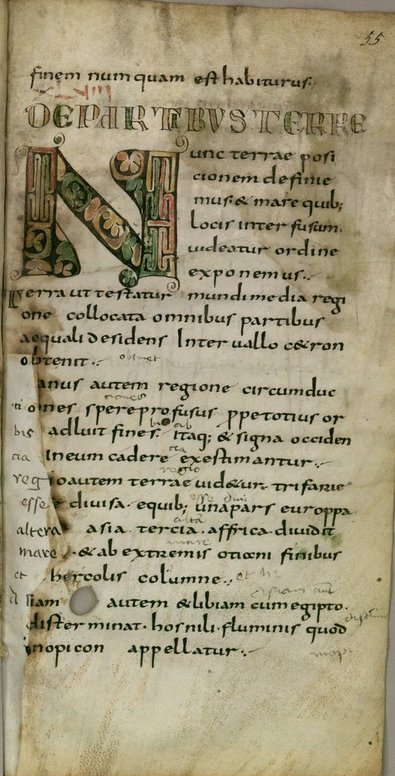 55
finem numquam est habiturus.
XVIII
DE PARTIBUS TERRE
Nunc terrae posi
cionem definie
mus & mare quib;
locis inter fusum.
uideatur ordine
exponemus.
Terra ut testatur mundi media regi
one collocata omnibus partibus
aequali desidens Inter uallo c&ron
obtenit. obtinet
anus autem regione circumduc
tiones spere profusus ppe totius or
bis adluit fines. Itaq; & signa occiden
tia In eum cadere exestimantur.
regio autem terrae uid&ur. trifarie
esse diuisa. e quib; una pars europpa
altera asia. tercia. affrica. diuidit
mare. & ab extremis otioeni finibus
et hercolis columne.
liam autem & libiam cum egipto.
disterminat. hos nili. fluminis quod
inopicon appellatur.